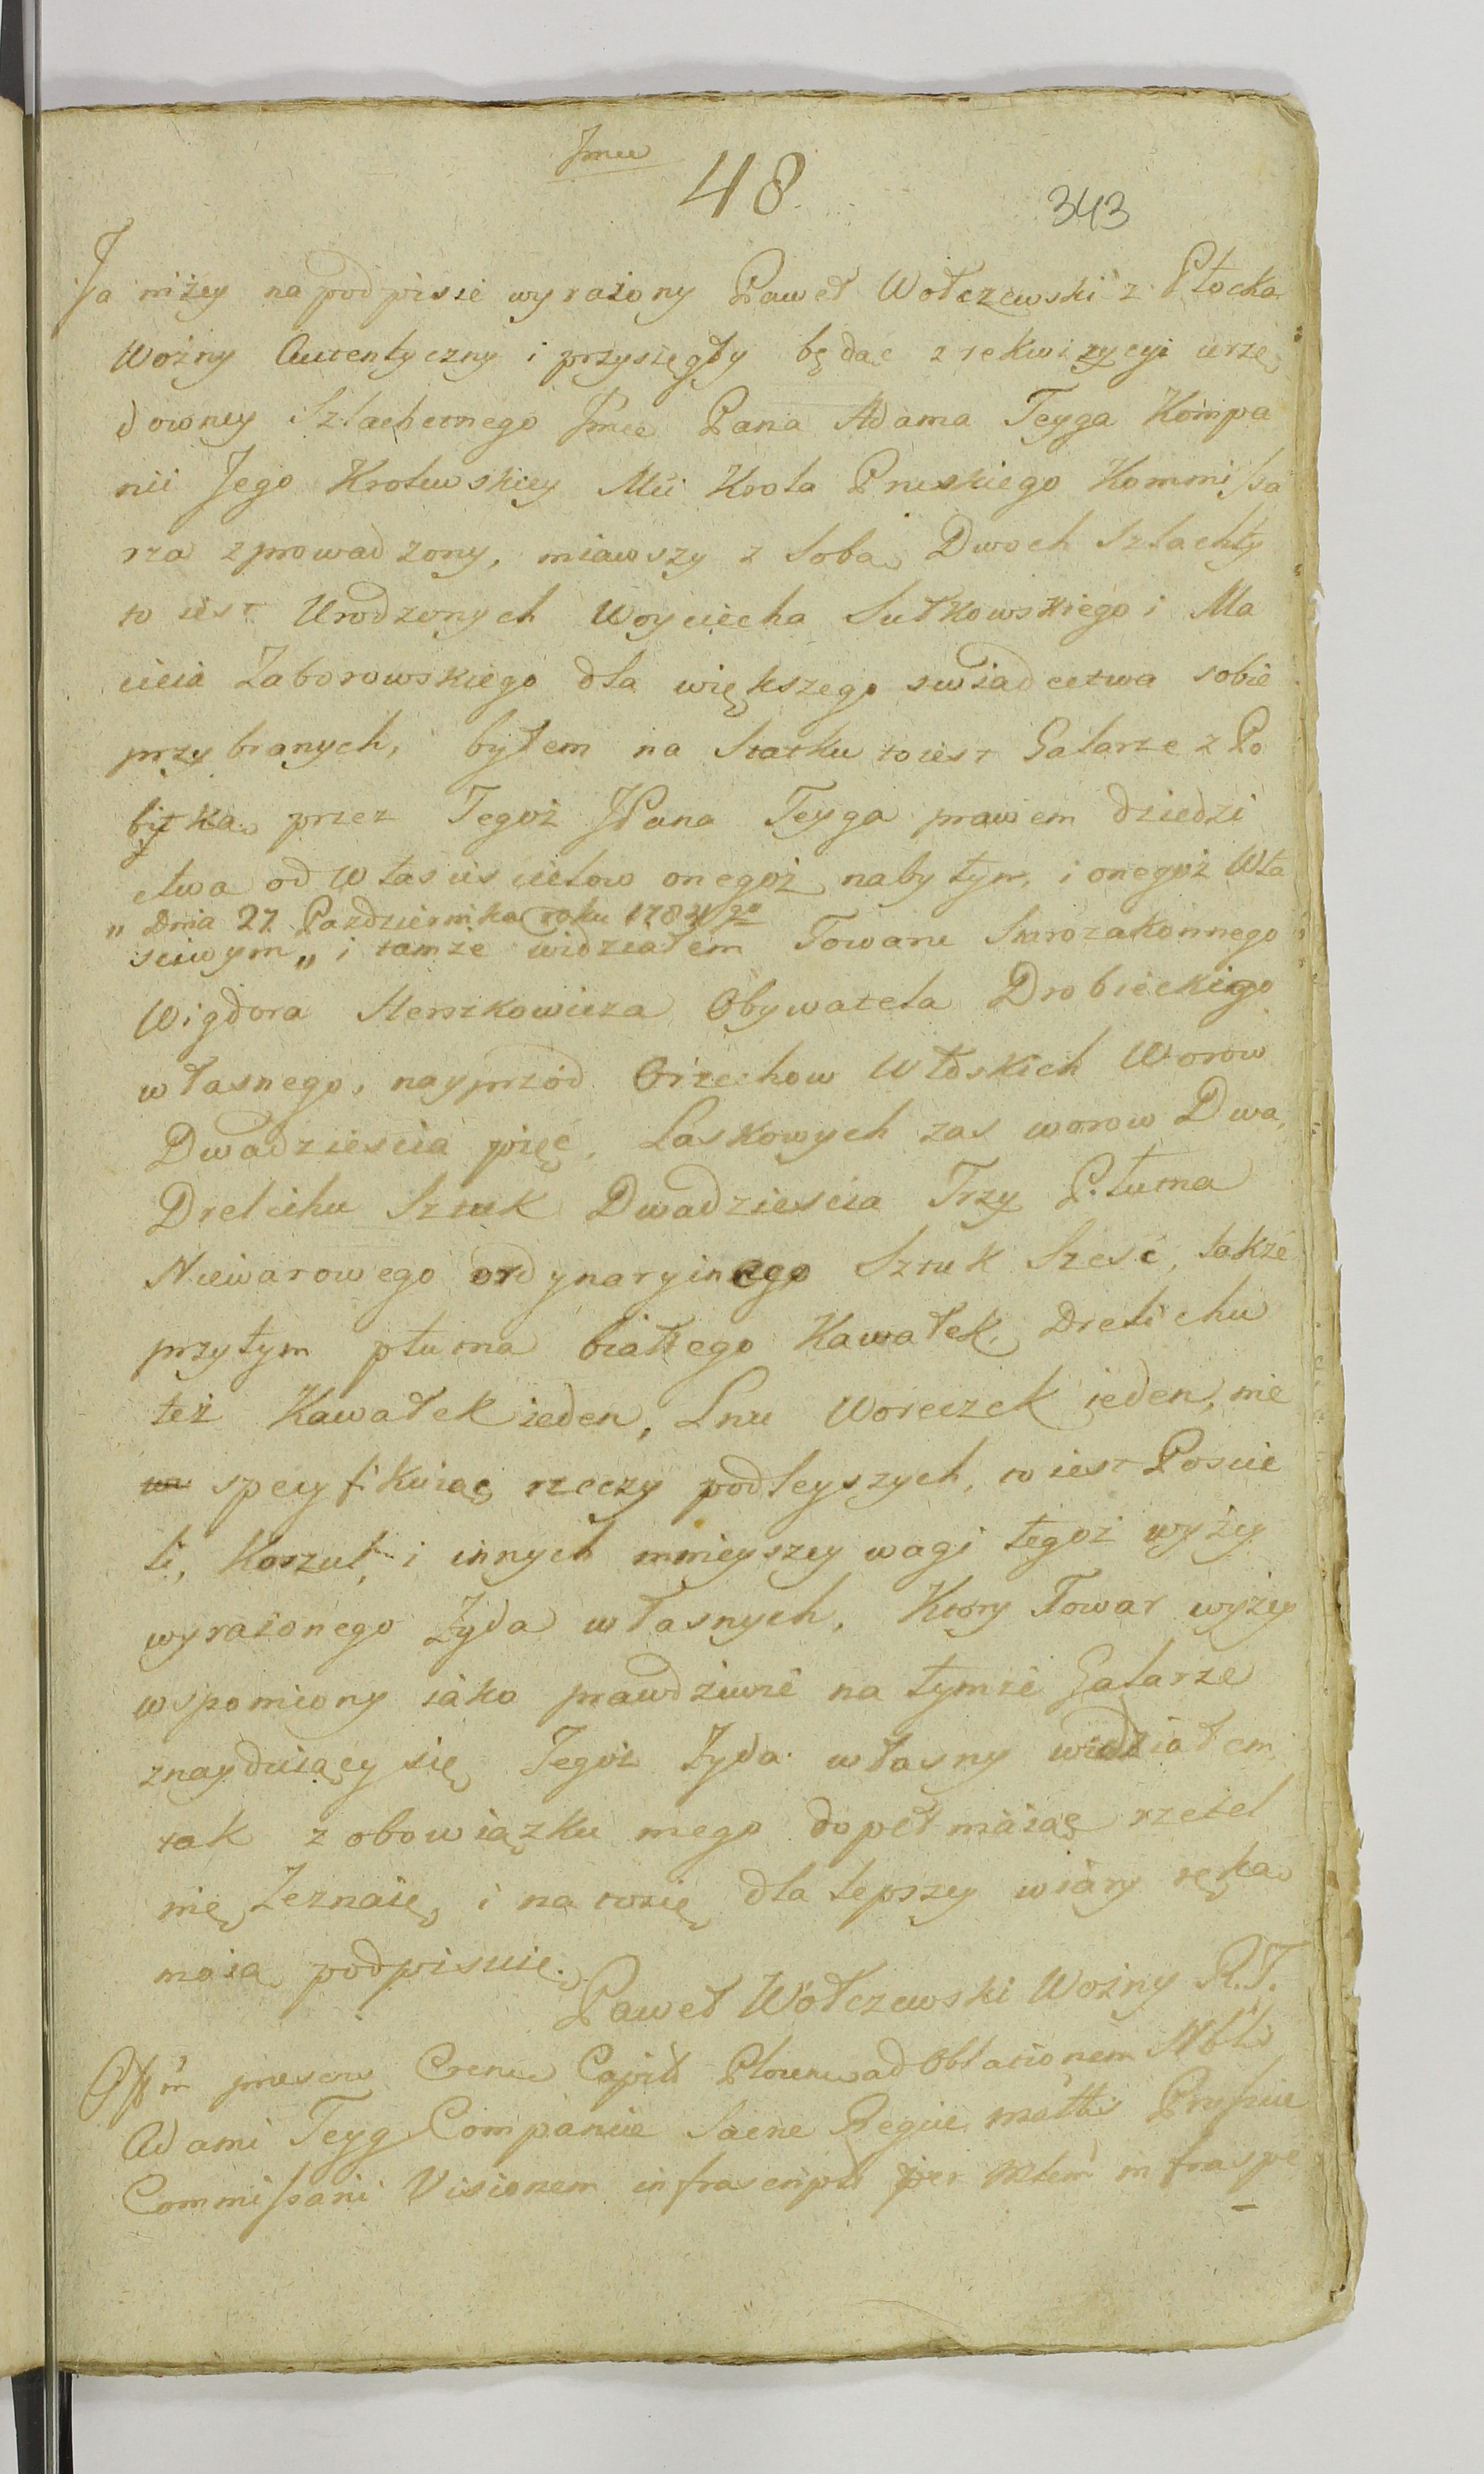 Jmee
48.
343
Ja niżey na podpisie wyrażony Paweł Wołczewski z Płocka
Wożny Autentyczny i przysięgły będąc z rekwizycyi urzę
downey Szlachetnego Jmci Pana Adama Teyga Kompa
nii Jego Krolewskiey Mci Krola Pruskiego Kommissa
rza zprowadzony, miawszy z sobą Dwoch Szlachty
to iest Urodzonych Woyciecha Sułkowskiego i Ma
cieia Zaborowskiego dla większego swiadectwa sobie
przybranych, byłem na Statku to iest Galarze z Po
bitką przez Tegoż JPana Teyga prawem dziedzi
ctwa od własuiscielow onegoż nabytym, i onegoż Wła
„ Dnia 27 Pazdziernika roku 1784go
sciwym „ i tamże widziałem Towaru Starozakonnego
Wigdora Herszkowicza Obywatela Drobieckiego
własnego, nayprzód Orzechow Włoskich Worow
Dwadziescia pięć, Laskowych zas worow Dwa,
Drelichu Sztuk Dwadziescia Trzy Płutna
Niewarowego ordynaryinego Sztuk Szesć, także
przytym płutna białłego Kawałek, Drelichu
też Kawałek ieden, Lnu Woreczek ieden, nie
specyfikuiąc rzeczy podleyszych, to iest Poscie
li, Koszul, i innych mnieyszey wagi tegoż wyżey
wyrażonego Żyda własnych, Ktory Towar wyżey
wspomiony iako prawdziwie na tymże Galarze
znayduiący się Tegoż Żyda własny widziałem
tak z obowiązku mego dopełniaiąc rzetel
nię Zeznaię, i na toż się dla lepszey wiary ręką
moią podpisuię.
Paweł Wołczewski Wożny R.T.
Offm presens Crense Capitle Plocense ad Oblationem Nblis
Adami Teyg Companiæ Sacræ Regiæ mattis Prussiæ
Commissarii Visionem infrascriptã per Mlem infraspe